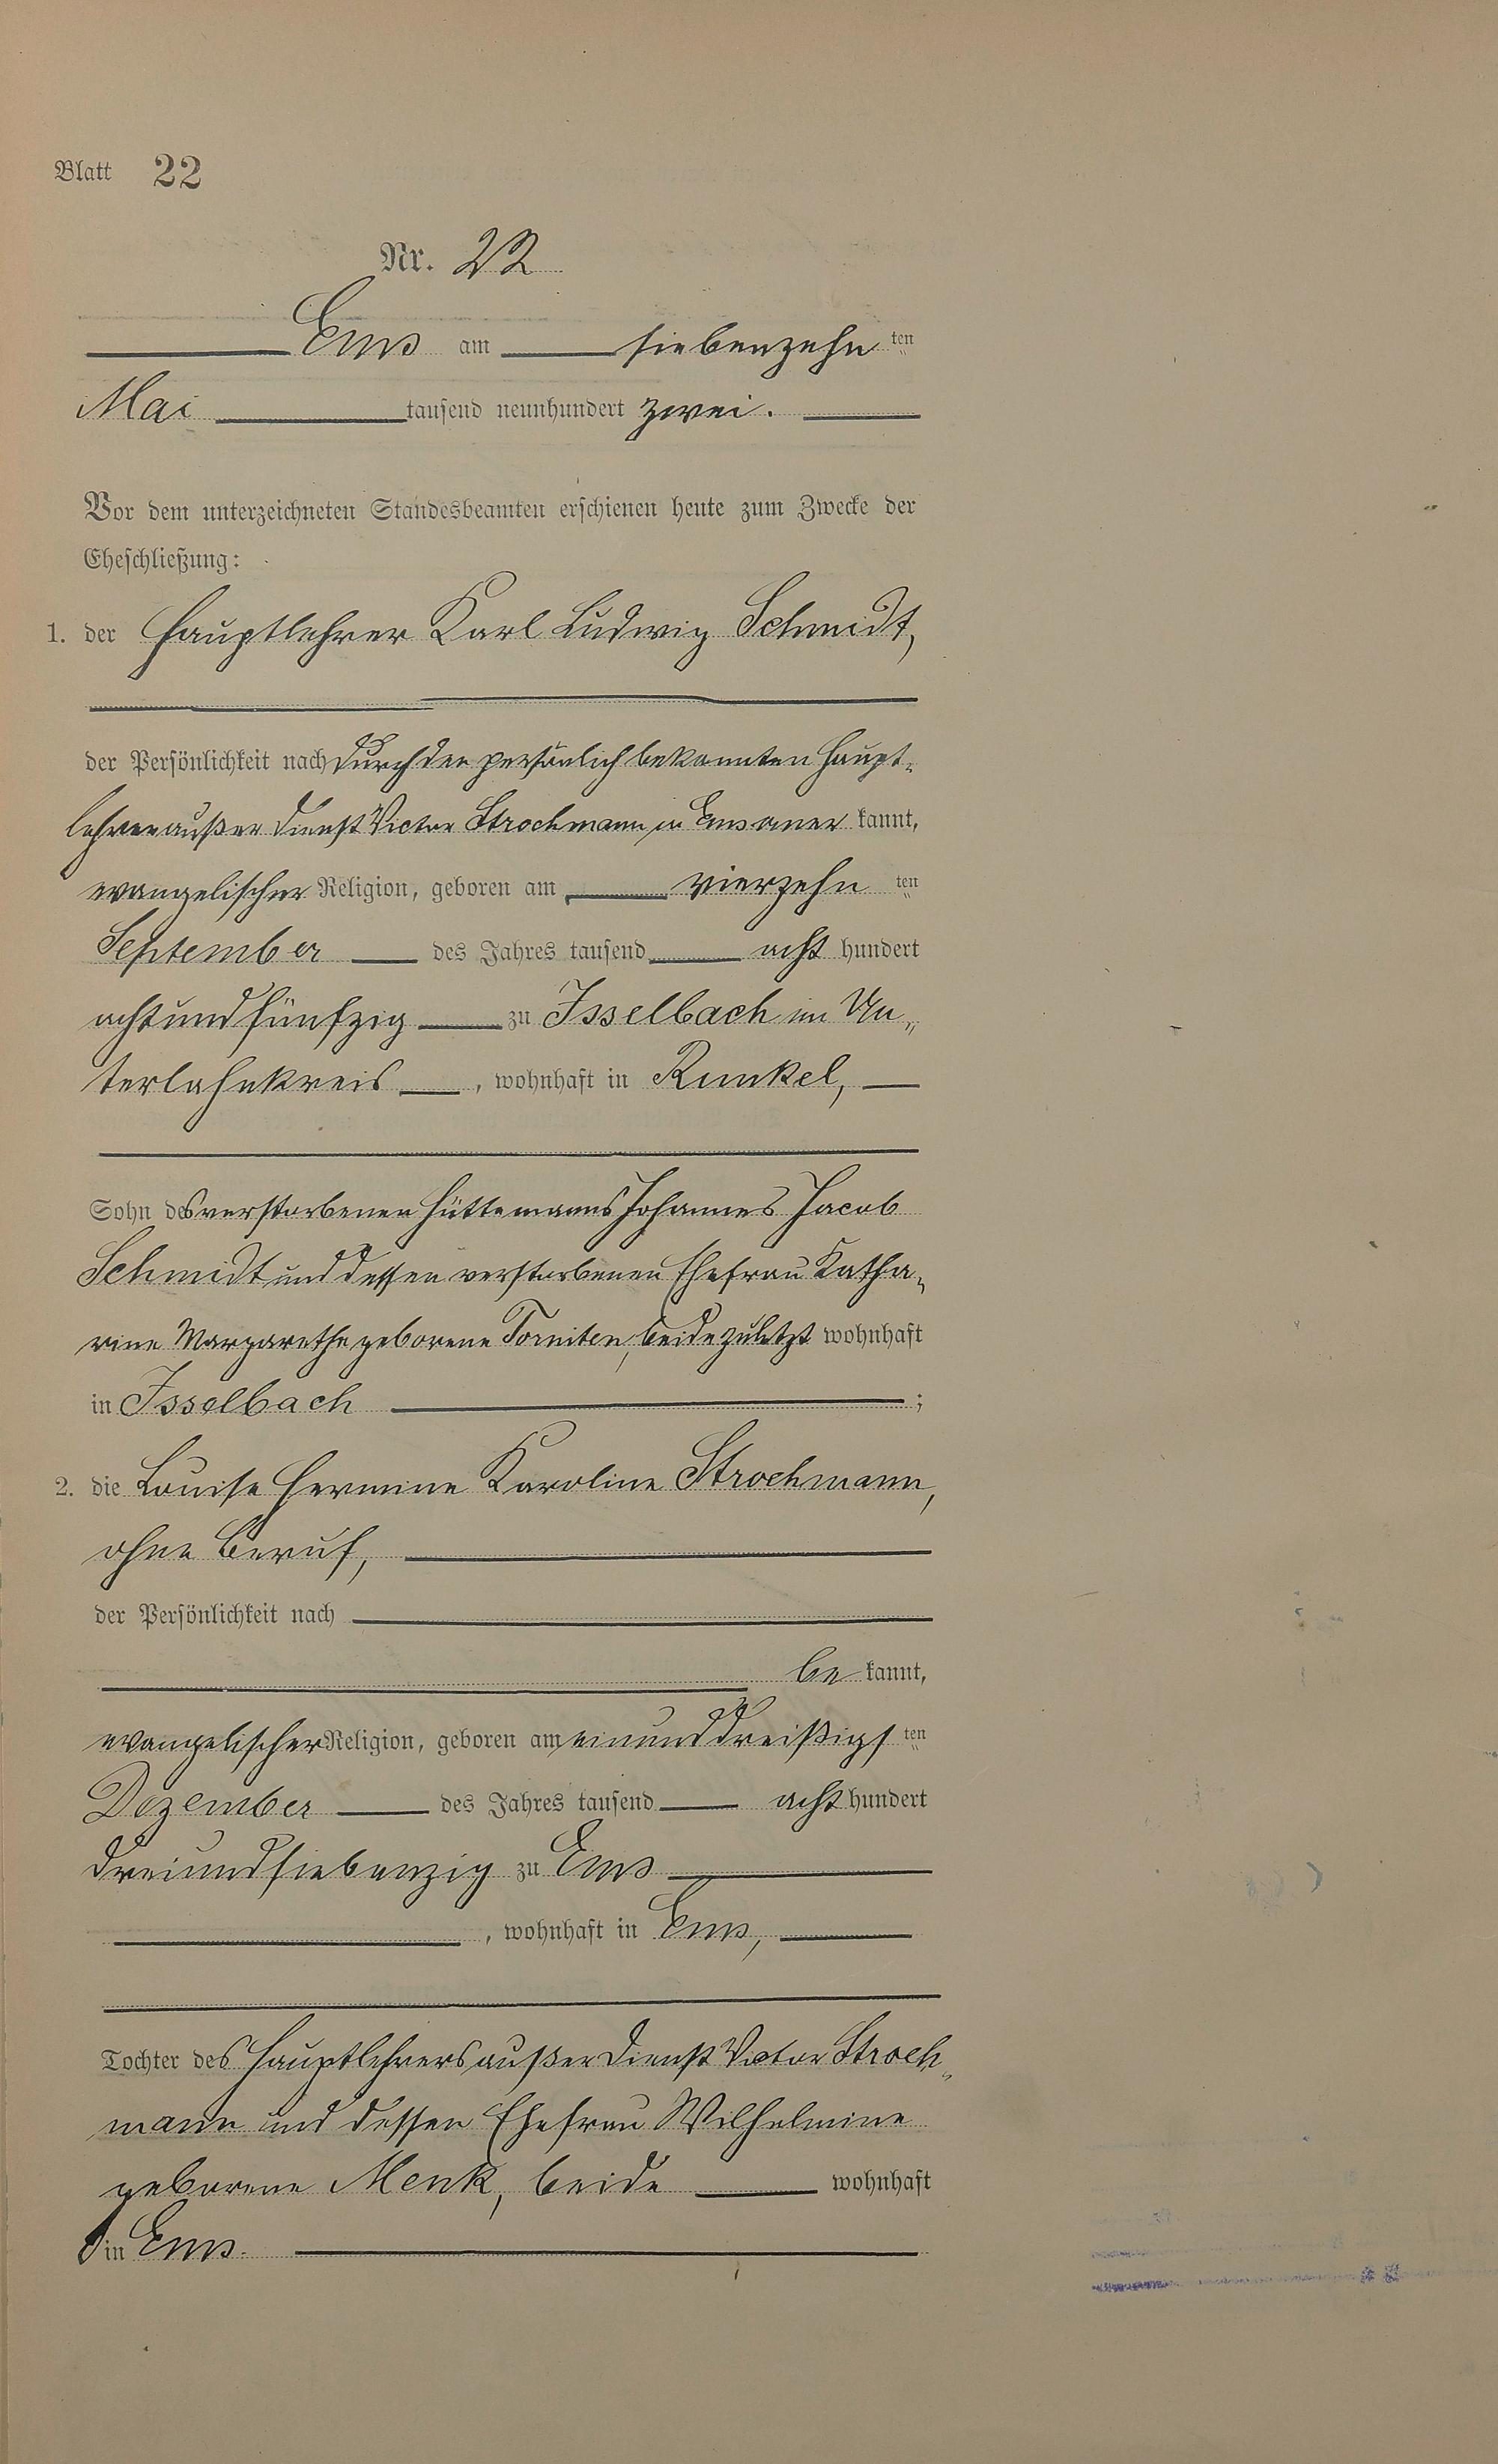 Blatt 22
Nr. 22
Ems am siebenzehn ten
Mai tausend neunhundert zwei.
Vor dem unterzeichneten Standesbeamten erschienen heute zum Zwecke der
Eheschließung:
1. der Hauptlehrer Karl Ludwig Schmidt,
der Persönlichkeit nach durch den persönlich bekannten Haupt-
lehrer außer Dienst Victor Stroehmann in Ems aner kannt,
evangelischer Religion, geboren am vierzehn ten
September des Jahres tausend acht hundert
achtundfünfzig zu Isselbach im Un-
terlahnkreis, wohnhaft in Runkel,
Sohn des verstorbenen Hüttemanns Johannes Jacob
Schmidt und dessen verstorbenen Ehefrau Katha-
rine Margarethe geborene beide zuletzt wohnhaft
in Isselbach ;
2. die Louise Hermine Karoline Stroehmann,
ohne Beruf,
der Persönlichkeit nach
be kannt,
evangelischer Religion, geboren am einunddreißigs ten
Dezember des Jahres tausend acht hundert
dreiundsiebenzig zu Ems
, wohnhaft in Ems,
Tochter des Hauptlehrers außer Dienst Victor Stroeh-
mann und dessen Ehefrau Wilhelmine
geborene Menk, beide wohnhaft
in Ems.